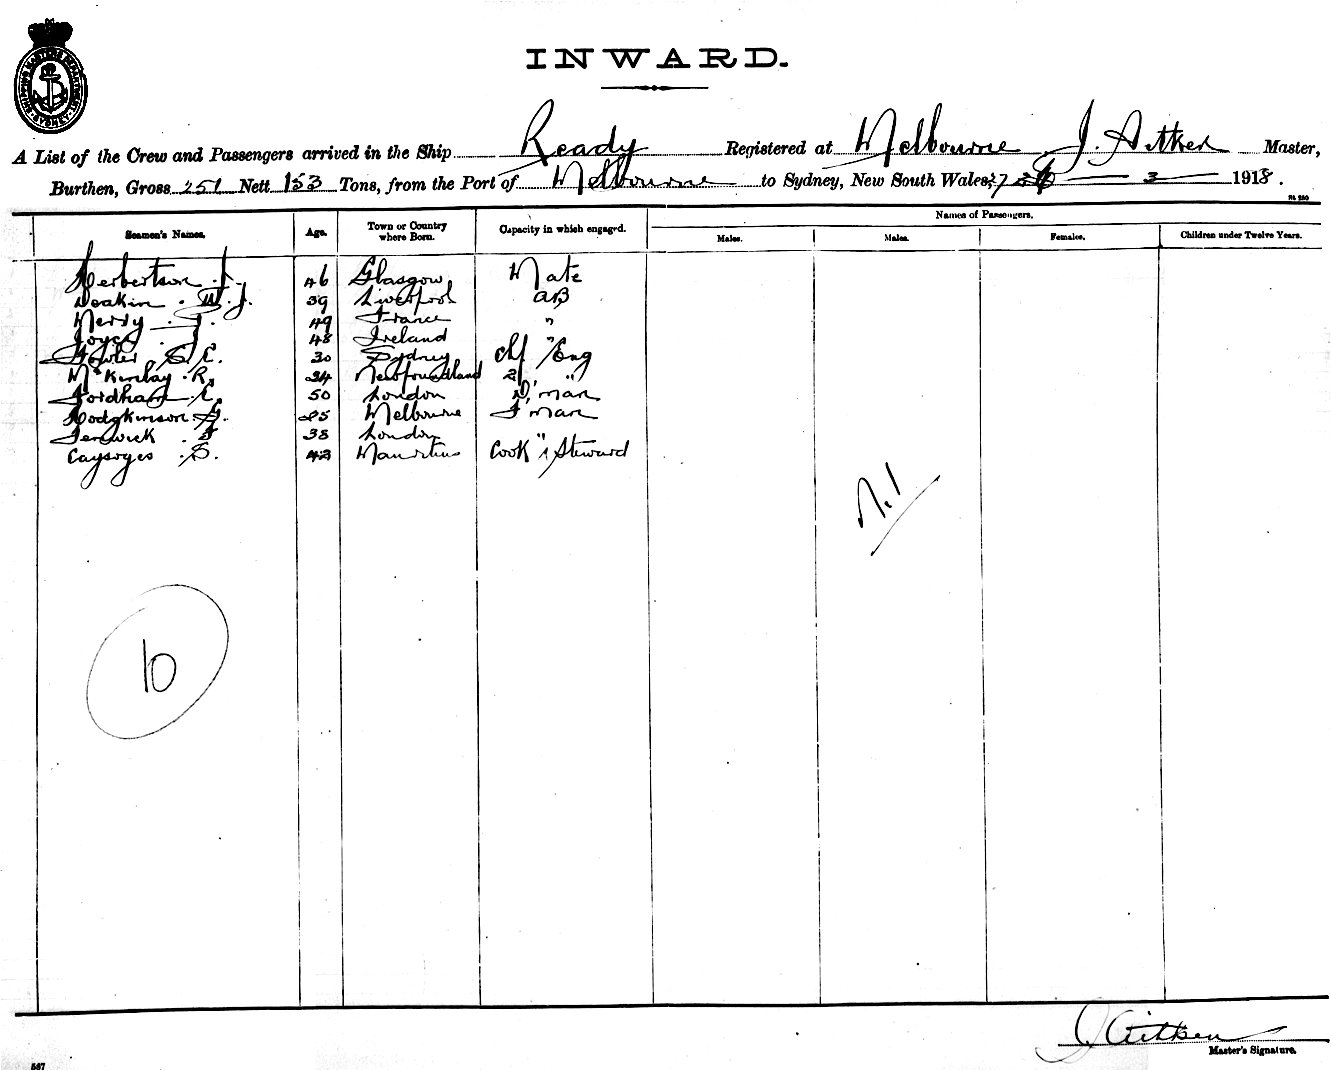 SHIPPING MASTER'S DEPARTMENT SYDNEY
INWARD.
A List of the Crew and Passengers arrived in the Ship Ready Registered at Melbourne J. Aitken Master,
Burthen, Gross 251 Nett 153 Tons, from the Port of Melbourne to Sydney, New South Wales, 27 3 1918.
Names of Passengers.
Seamen's Names. Age. Town or Country where Born. Capacity in which engaged. Males. Males. Females. Children under Twelve Years.
Herbertson J. 46 Glasgow Mate
Deakin W. J. 39 Liverpool AB
Merdy J. 49 France "
Joyce J. 48 Ireland "
Fowler E. 30 Sydney Chf Eng
McKinlay R. 34 Newfoundland 2/ "
Fordham E. 50 London D/man
Hodgkinson 25 Melbourne F man
Fenwick F 38 London "
S. 42 Mauritius Cook & Steward
Nil
10
J Aitken
Master's Signature.
567